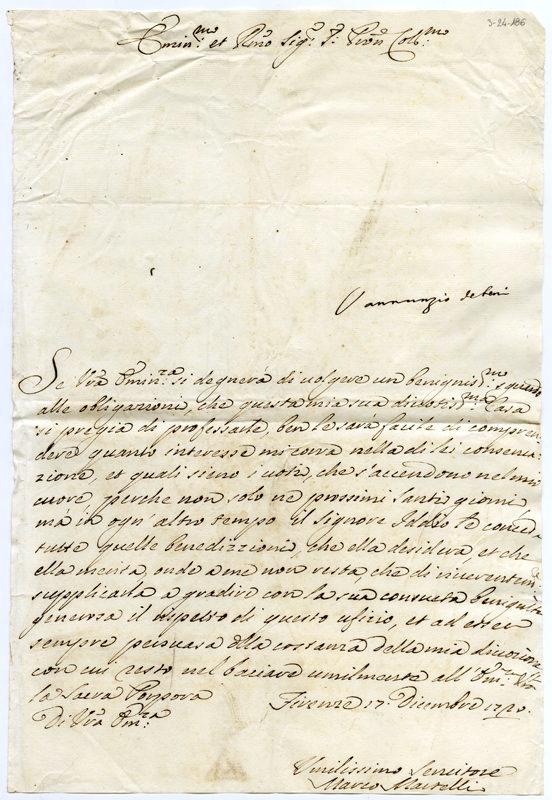 3-24-186
Emin:mo et Rmo Sigr Pron Col:mo
annunzio de beni
Se Vra Emin:za si degnerà di volgere un benigniss:mo sguardo
alle obligazioni, che questa mia sua divotis:ma Casa
si pregia di professarle, ben le sarà facile di compren
dere quanto interesse mi corra nella di lei conserva
zione, et quali sieno i voti, che s'accendono nel mio
cuore, perche non solo ne prossimi santi giorni
mà in ogn' altro tempo il Signore Iddio le conceda
tutte quelle benedizzioni, che ella desidera, et che
ella merita, onde a me non resta, che di riverentem:te
supplicarla a gradire con la sua consueta benignità
generosa il rispetto di questo ufizio, et ad esser
sempre persuasa della costanza della mia divozione
con cui resto nel baciare umilmente all' Em:za Vra
la Sacra Porpora
Di Vra Em:za
Firenze 17. Dicembre
Umilissimo Servitore
Marco Martelli